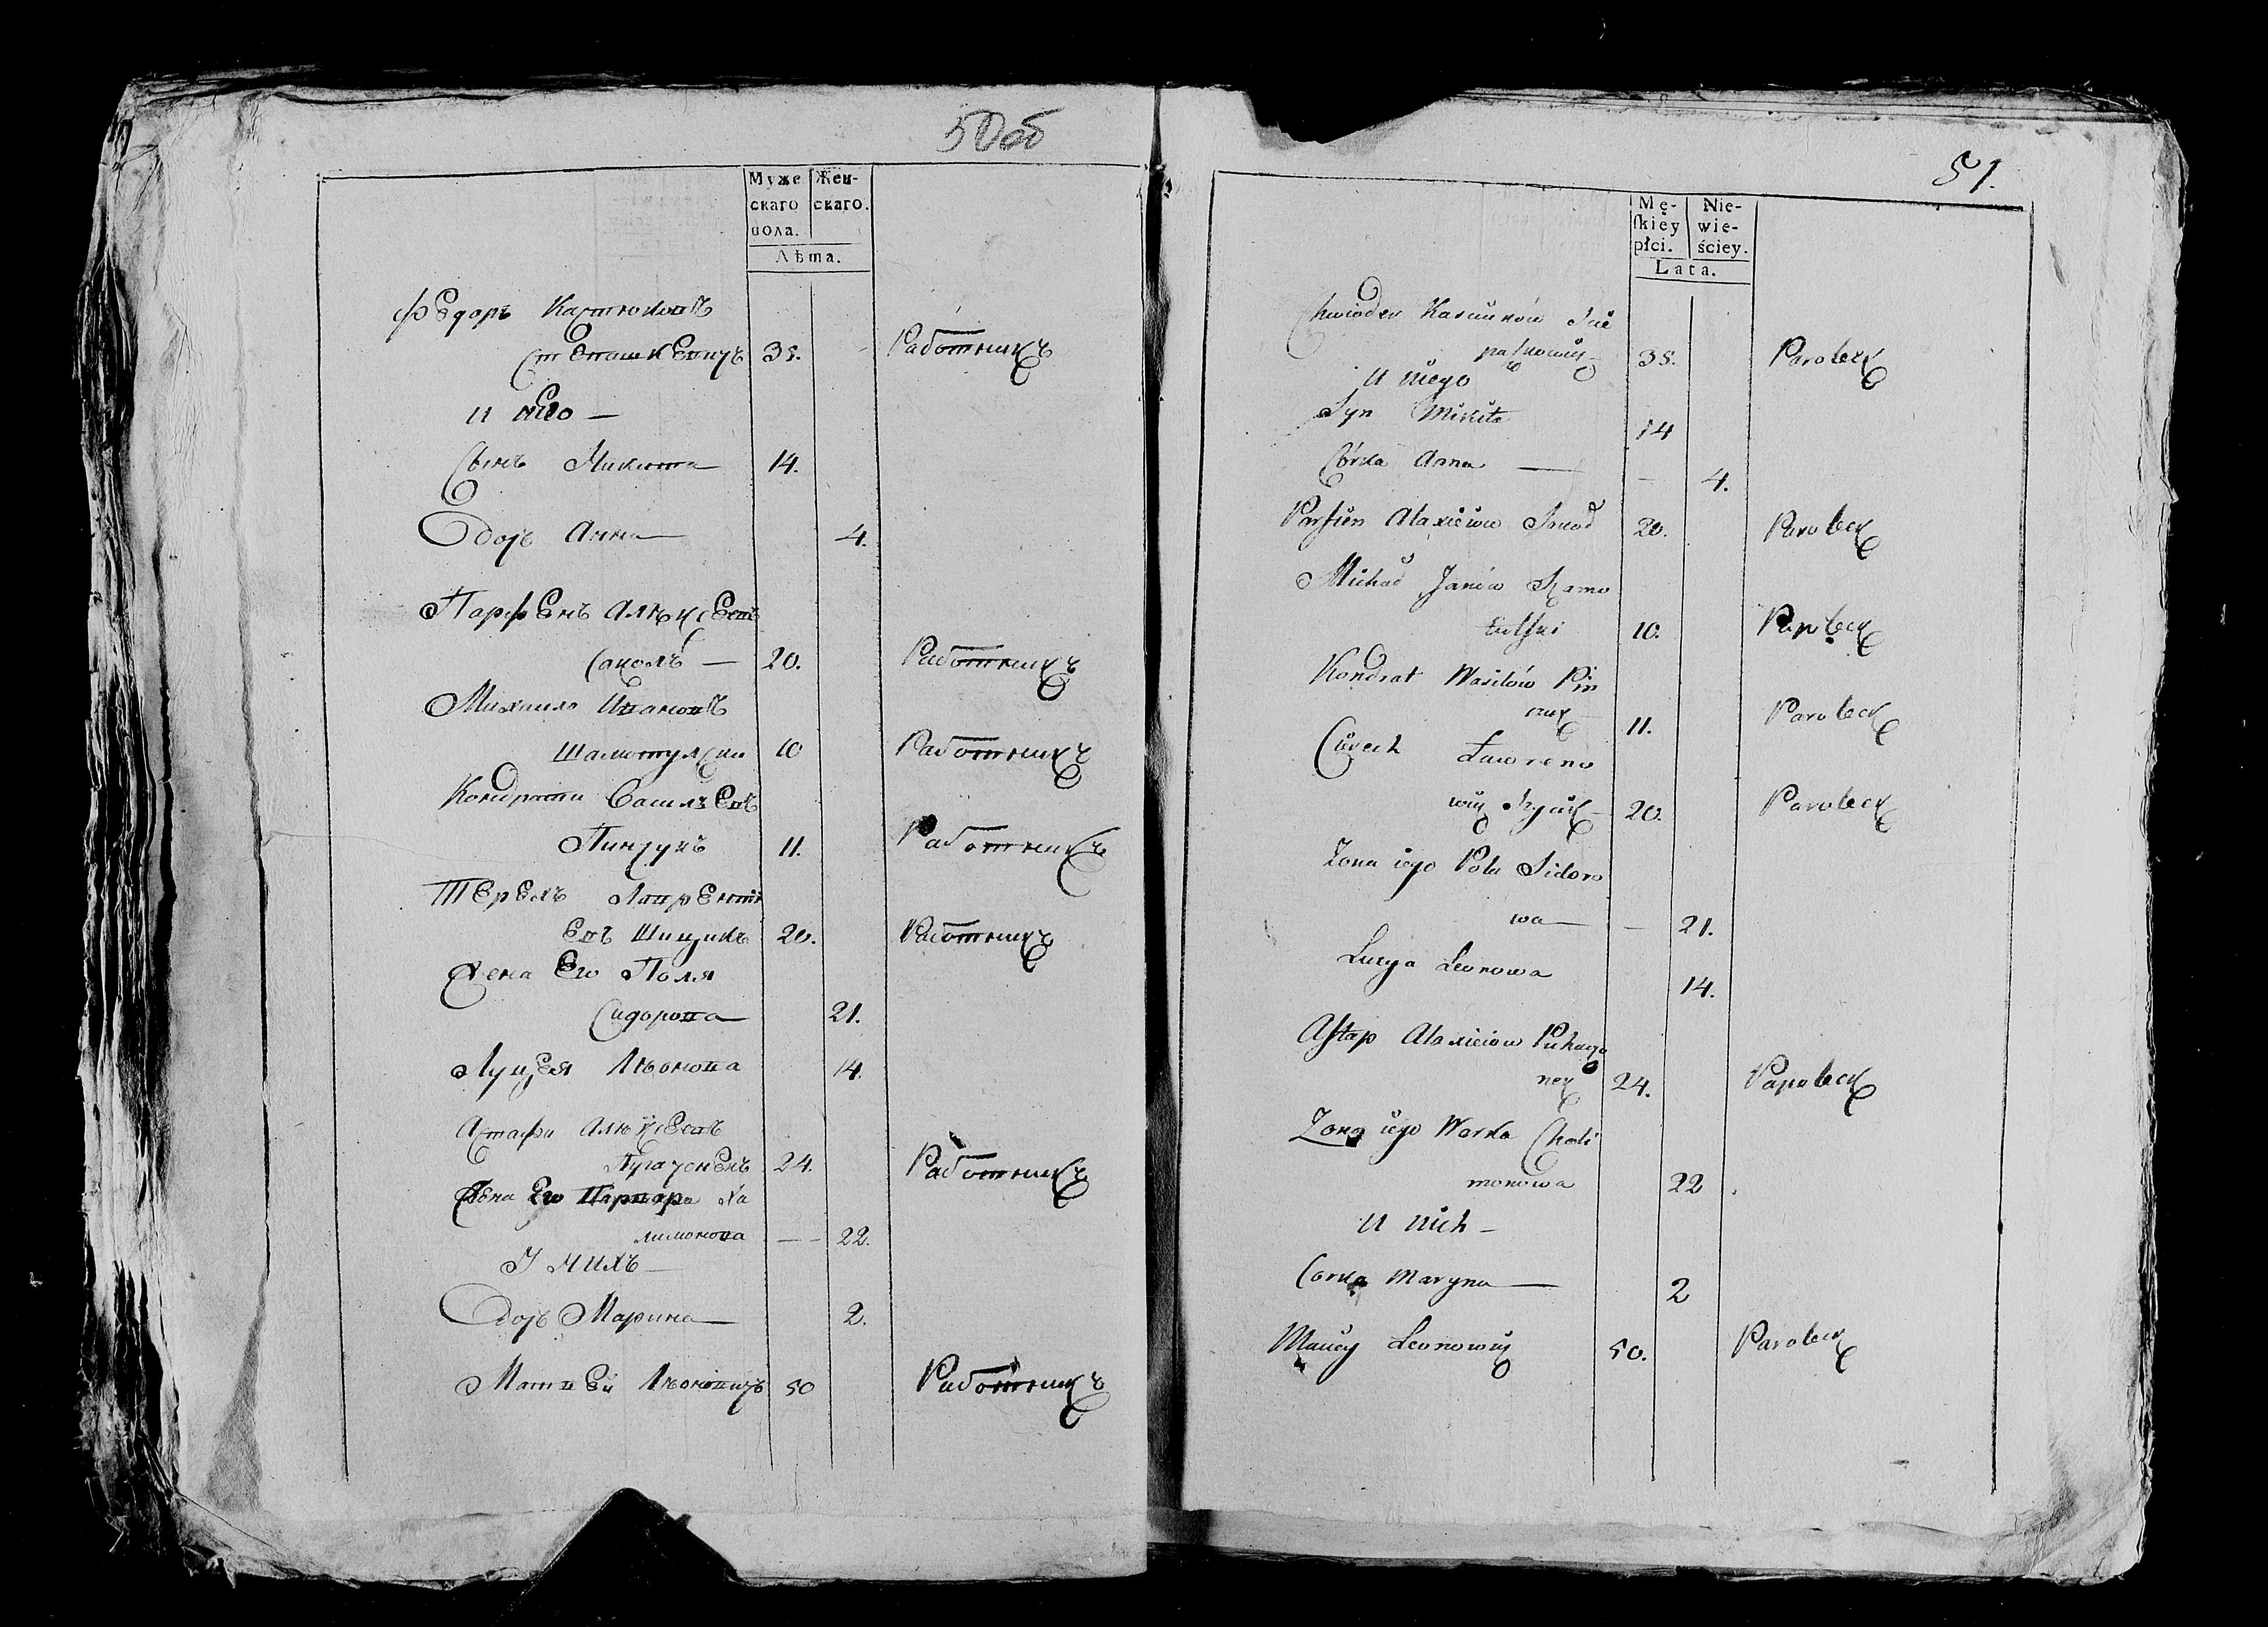 50об
Муже
скаго
пола.
Жен-
скаго.
Лѣта.
Федоръ Кастюковъ
Степашкевичъ 35. Работникъ
У него —
Сынъ Микита 14.
Дочь Анна 4.
Парфенъ Алексеевъ
Саколъ — 20. Работникъ
Михаило Ивановъ
Шамотулски 10 Работникъ
Кондрати Васильевъ
Пинчукъ 11. Работникъ
Терехъ Лаврентьи
евъ Шищикъ 20. Работникъ
Жена Его Поля
Сидорова 21.
Луцея Леонова 14.
Астафи Алексеевъ
24. Работникъ
Жена Его Варвара Ха
лимонова — 22.
У нихъ —
Дочь Марина 2.
Матвей Леоновичъ 50 Работникъ
51.
Mę-
skiey
płci.
Nie-
wie-
ściey.
Lata.
Chwiodor
35. Parobek
U niego
Syn Mikita 14
Córka Anna — - 4.
Parfien Alaxiéiow 20. Parobek
Michał Janów Szamo
tulski 10. Parobek
Kondrat Wasilów Pin
czuk 11. Parobek
Cierech Ławreno
wicz 20. Parobek
Zona iego Pola Sidoro
wa — - 21.
Lucya Leonowa 14.
Astap Alaxieiow
24. Parobek
Zona iego Warka Chali
monowa 22
U nich —
Corka Maryna — 2
Maciey Leonowicz 50. Parobek